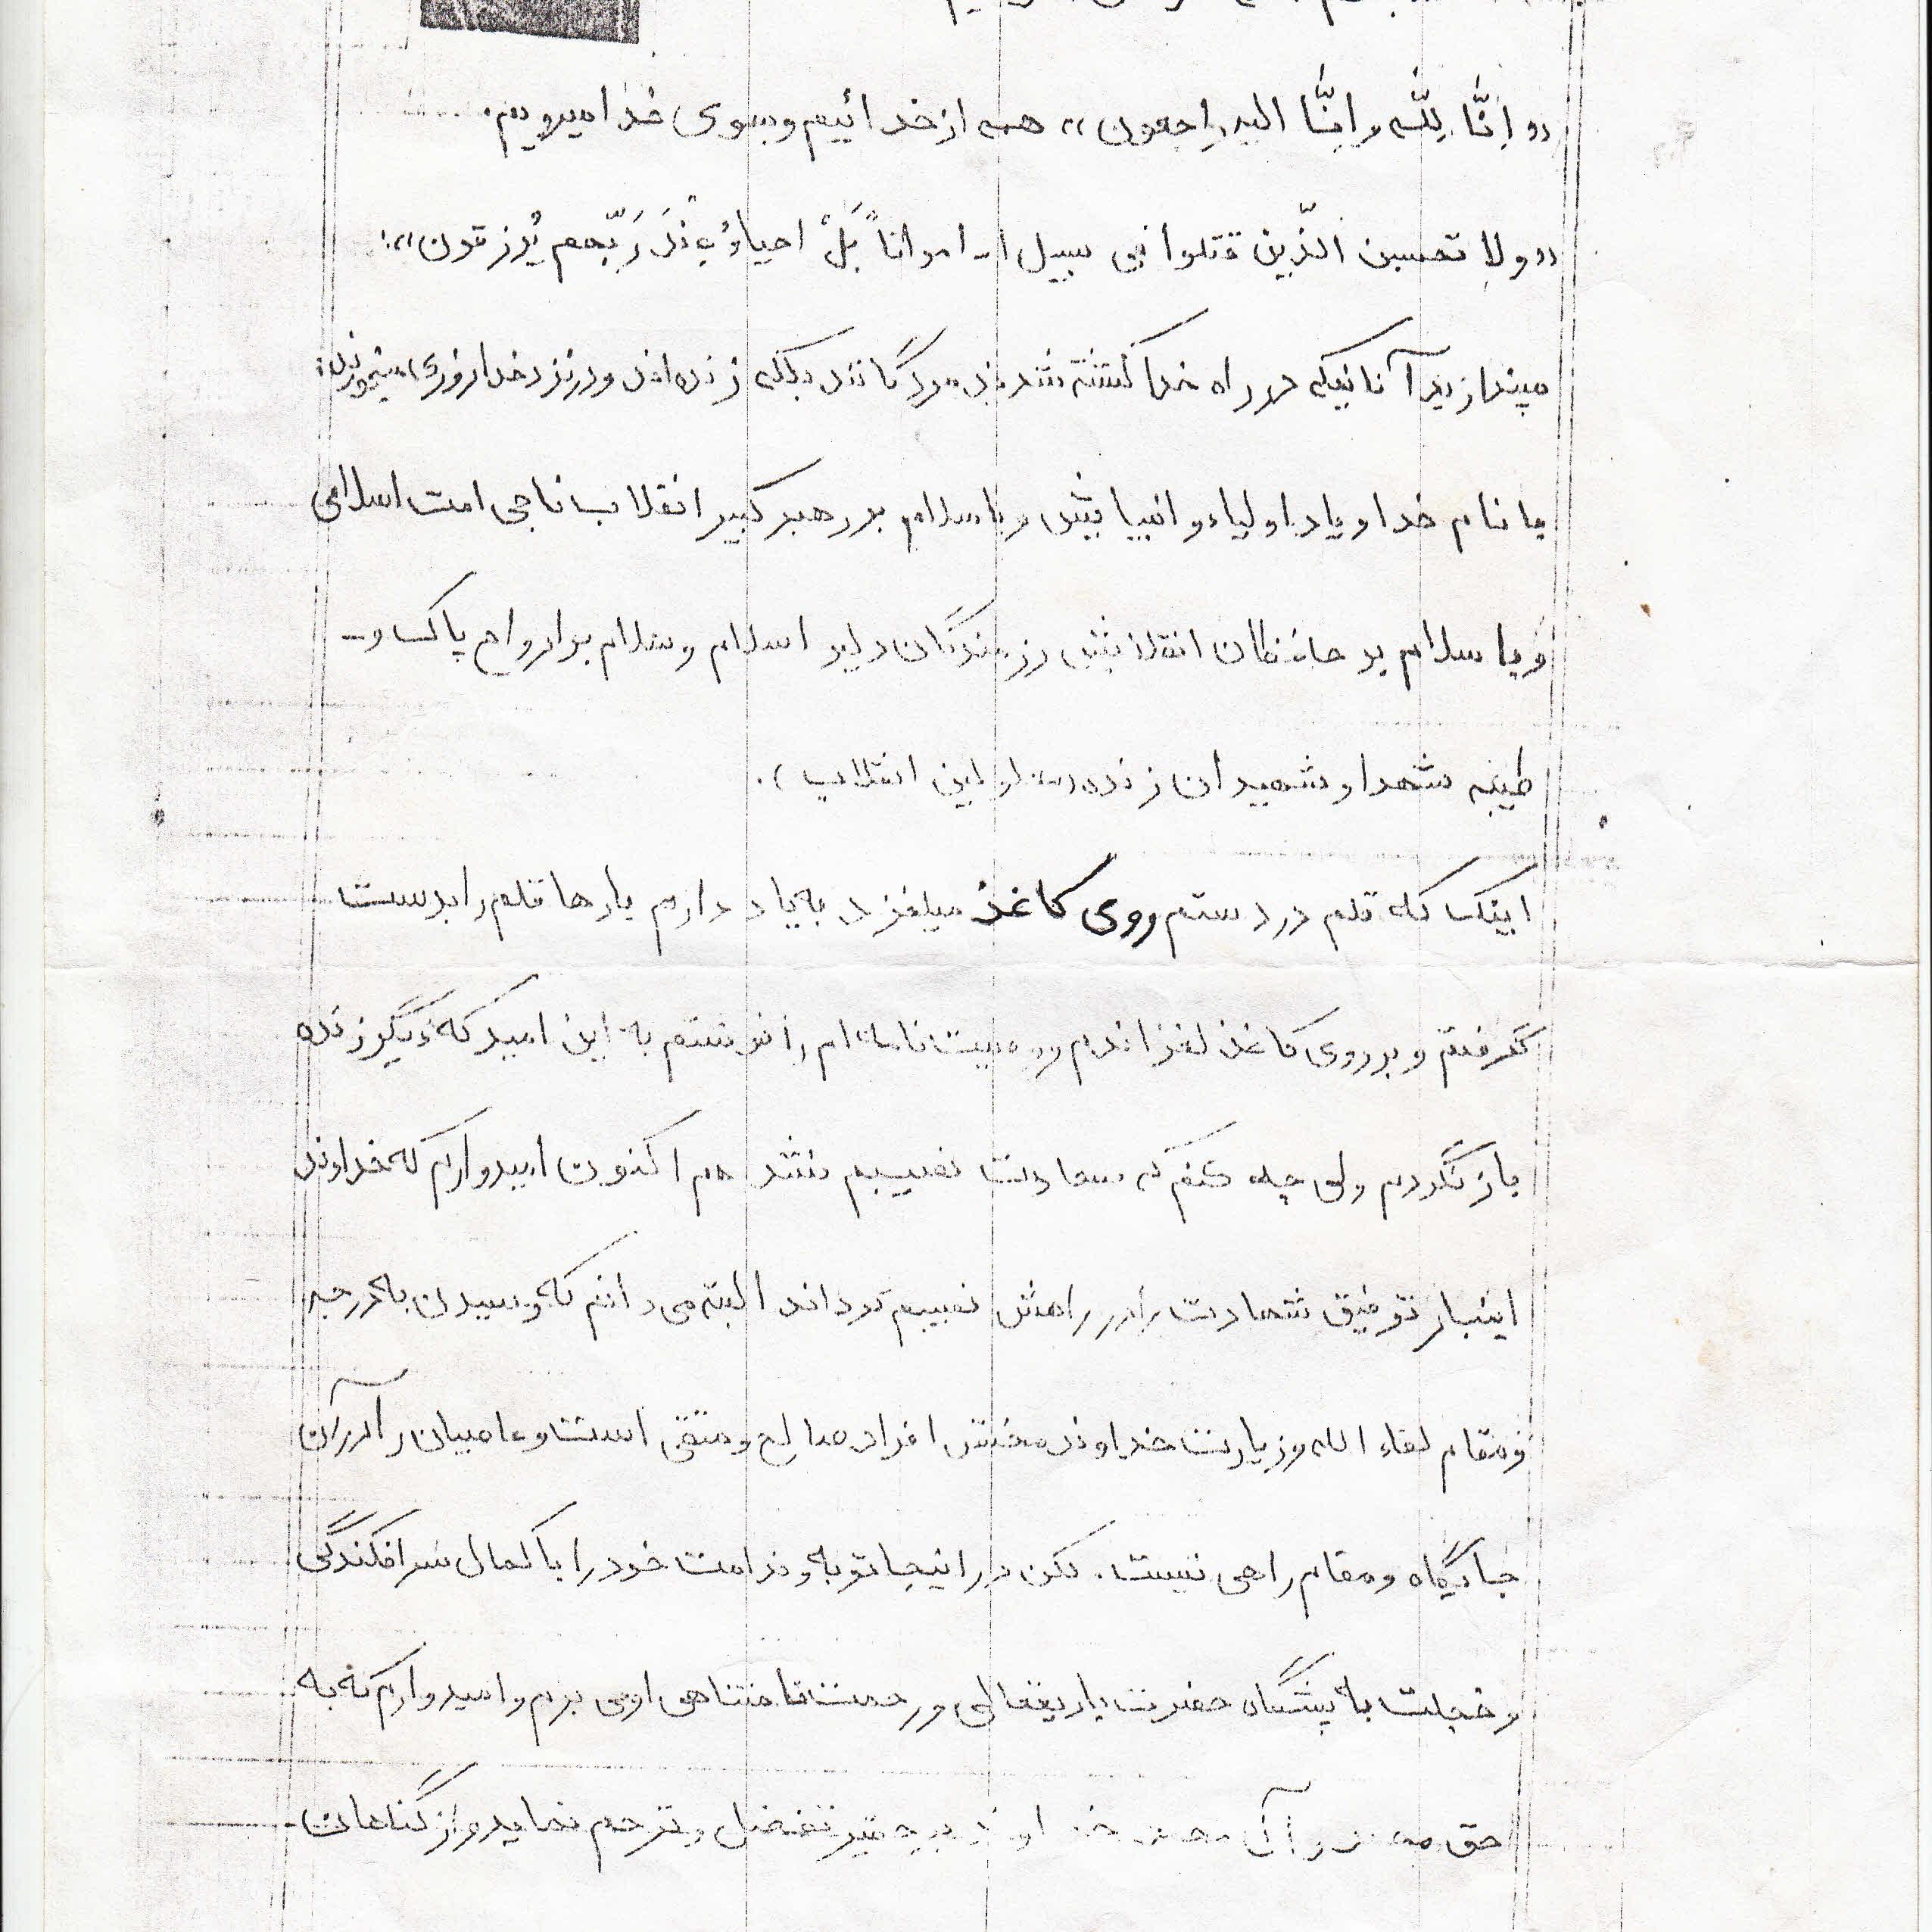 «انّا للّه و انّا الیه راجعون» همه از خدائیم و بسوی خدا میرویم.
«ولا تحسبن الذّین قتلوا فی سبیل ا... امواتاً بَلْ احیاءُ عِنْدَ رَبّهم یُرزقون»:
مپندارید آنانیکه در راه خدا کشته شدند مردگانند بلکه زنده‌اند و در نزد خدا روزی میخورند:
با نام خدا و یاد اولیاء و انبیایش و با سلام بر رهبر کبیر انقلاب ناجی امت اسلامی
و با سلام بر حافظان انقلابش رزمندگان دلیر اسلام و سلام بر ارواح پاک و-
طیبه شهدا و شهیدان زنده (معلولین انقلاب).
اینک که قلم در دستم روی کاغذ میلغزد به یاد دارم بارها قلم را بدست
گرفتم و بر روی کاغذ لغزاندم و وصیت نامه‌ام را نوشتم به این امید که دیگر زنده
باز نگردم ولی چه کنم که سعادت نصیبم نشد هم اکنون امیدوارم که خداوند
اینبار توفیق شهادت را در راهش نصیبم گرداند البته می‌دانم که رسیدن به درجه
و مقام لقاء الله و زیارت خداوند مختص افراد صالح و متقی است و عاصیان را در آن
جایگاه و مقام راهی نیست. لکن در اینجا توبه و ندامت خود را با کمال سرافکندگی
و خجلت به پیشگاه حضرت باریتعالی و رحمت نامتناهی او می برم و امیدوارم که به
حق محمد و آل محمد خداوند بر حقیر تفضل و ترحم نماید و از گناهان